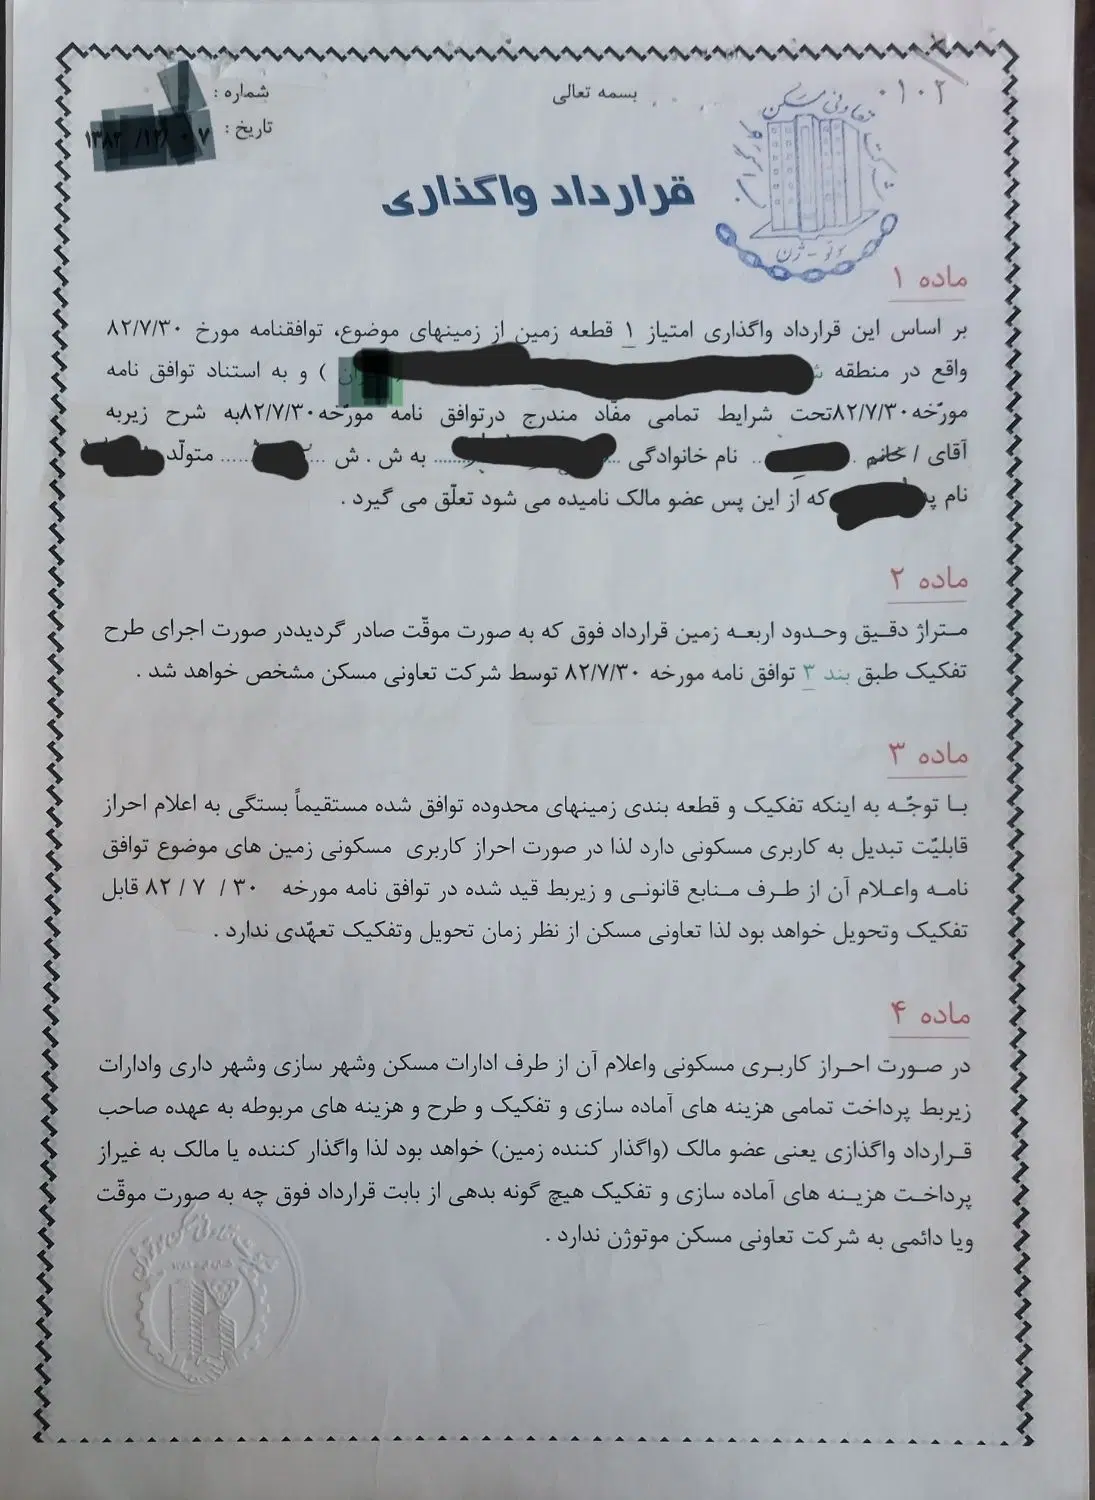 ۰۱۰۲
بسمه تعالی
شماره :
تاریخ : ۱۳۸۳/۱۲/۰۷
شرکت تعاونی مسکن کارگران
موتو - ژن
قرارداد واگذاری
ماده ۱
بر اساس این قرارداد واگذاری امتیاز ۱ قطعه زمین از زمینهای موضوع، توافقنامه مورخ ۸۲/۷/۳۰
واقع در منطقه ) و به استناد توافق نامه
مورّخه ۸۲/۷/۳۰تحت شرایط تمامی مفّاد مندرج درتوافق نامه مورّخه۸۲/۷/۳۰به شرح زیربه
آقای / خانم .. نام خانوادگی ...... به ش . ش ........ متولّد
نام که از این پس عضو مالک نامیده می شود تعلّق می گیرد .
ماده ۲
متراژ دقیق وحدود اربعه زمین قرارداد فوق که به صورت موقّت صادر گردیددر صورت اجرای طرح
تفکیک طبق بند ۳ توافق نامه مورخه ۸۲/۷/۳۰ توسط شرکت تعاونی مسکن مشخص خواهد شد .
ماده ۳
با توجّه به اینکه تفکیک و قطعه بندی زمینهای محدوده توافق شده مستقیماً بستگی به اعلام احراز
قابلیّت تبدیل به کاربری مسکونی دارد لذا در صورت احراز کاربری مسکونی زمین های موضوع توافق
نامه واعلام آن از طرف منابع قانونی و زیربط قید شده در توافق نامه مورخه ۳۰ / ۷ / ۸۲ قابل
تفکیک وتحویل خواهد بود لذا تعاونی مسکن از نظر زمان تحویل وتفکیک تعهّدی ندارد .
ماده ۴
در صورت احراز کاربری مسکونی واعلام آن از طرف ادارات مسکن وشهر سازی وشهر داری وادارات
زیربط پرداخت تمامی هزینه های آماده سازی و تفکیک و طرح و هزینه های مربوطه به عهده صاحب
قرارداد واگذازی یعنی عضو مالک (واگذار کننده زمین) خواهد بود لذا واگذار کننده یا مالک به غیراز
پرداخت هزینه های آماده سازی و تفکیک هیچ گونه بدهی از بابت قرارداد فوق چه به صورت موقّت
ویا دائمی به شرکت تعاونی مسکن موتوژن ندارد .
شرکت تعاونی مسکن موتوژن